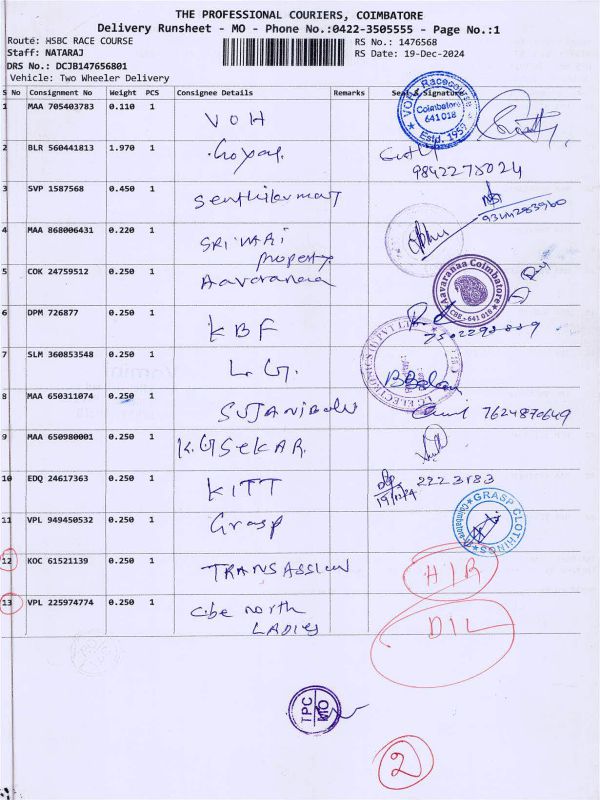 THE PROFESSIONAL COURIERS, COIMBATORE
Delivery Runsheet - MO - Phone No.:0422-3505555 - Page No.:1
Route: HSBC RACE COURSE
RS No.: 1476568
Staff: NATARAJ
RS Date: 19-Dec-2024
DRS No.: DCJB147656801
Vehicle: Two Wheeler Delivery
S No Consignment No Weight PCS Consignee Details Remarks Seal & Signature
1 MAA 705403783 0.110 1 VOH
VOH Racecourse Coimbatore 641 018 Estd. 1952
2 BLR 560441813 1.970 1 Goyal
9842275024
3 SVP 1587568 0.450 1 Senthilkumar
4 MAA 868006431 0.220 1 SRIVARI
property
5 COK 24759512 0.250 1 Aavaranaa
Aavaranaa Coimbatore
CBE - 641 018
6 DPM 726877 0.250 1 KBF
7 SLM 360853548 0.250 1 L.G.
LG ELECTRONICS (I) PVT LTD
8 MAA 650311074 0.250 1
7624870649
9 MAA 650980001 0.250 1 K.G SEKAR.
10 EDQ 24617363 0.250 1 KITT
2223183
19/12/24
11 VPL 949450532 0.250 1 Grasp
GRASP CLOTHINGS
Coimbatore
12 KOC 61521139 0.250 1
H/R
13 VPL 225974774 0.250 1 cbe north
LADIES
D/L
TPC
MO
2